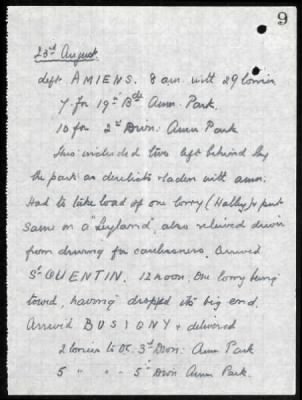 9
23rd August.
left AMIENS. 8 am with 29 lorries
7 for 19th Bde Amm. Park.
10 for 2nd Divn: Amm Park
This included two left behind by
the park as derelicts & laden with amm.
Had to take load of one lorry (Halley) & put
same on a "Leyland" also relieved driver
from driving for carelessness. Arrived
St QUENTIN. 12 noon. One lorry being
towed, having dropped its big end.
Arrived BUSIGNY & delivered
2 lorries to OC. 3rd Divn: Amm Park
5 " " - 5th Divn Amm Park.